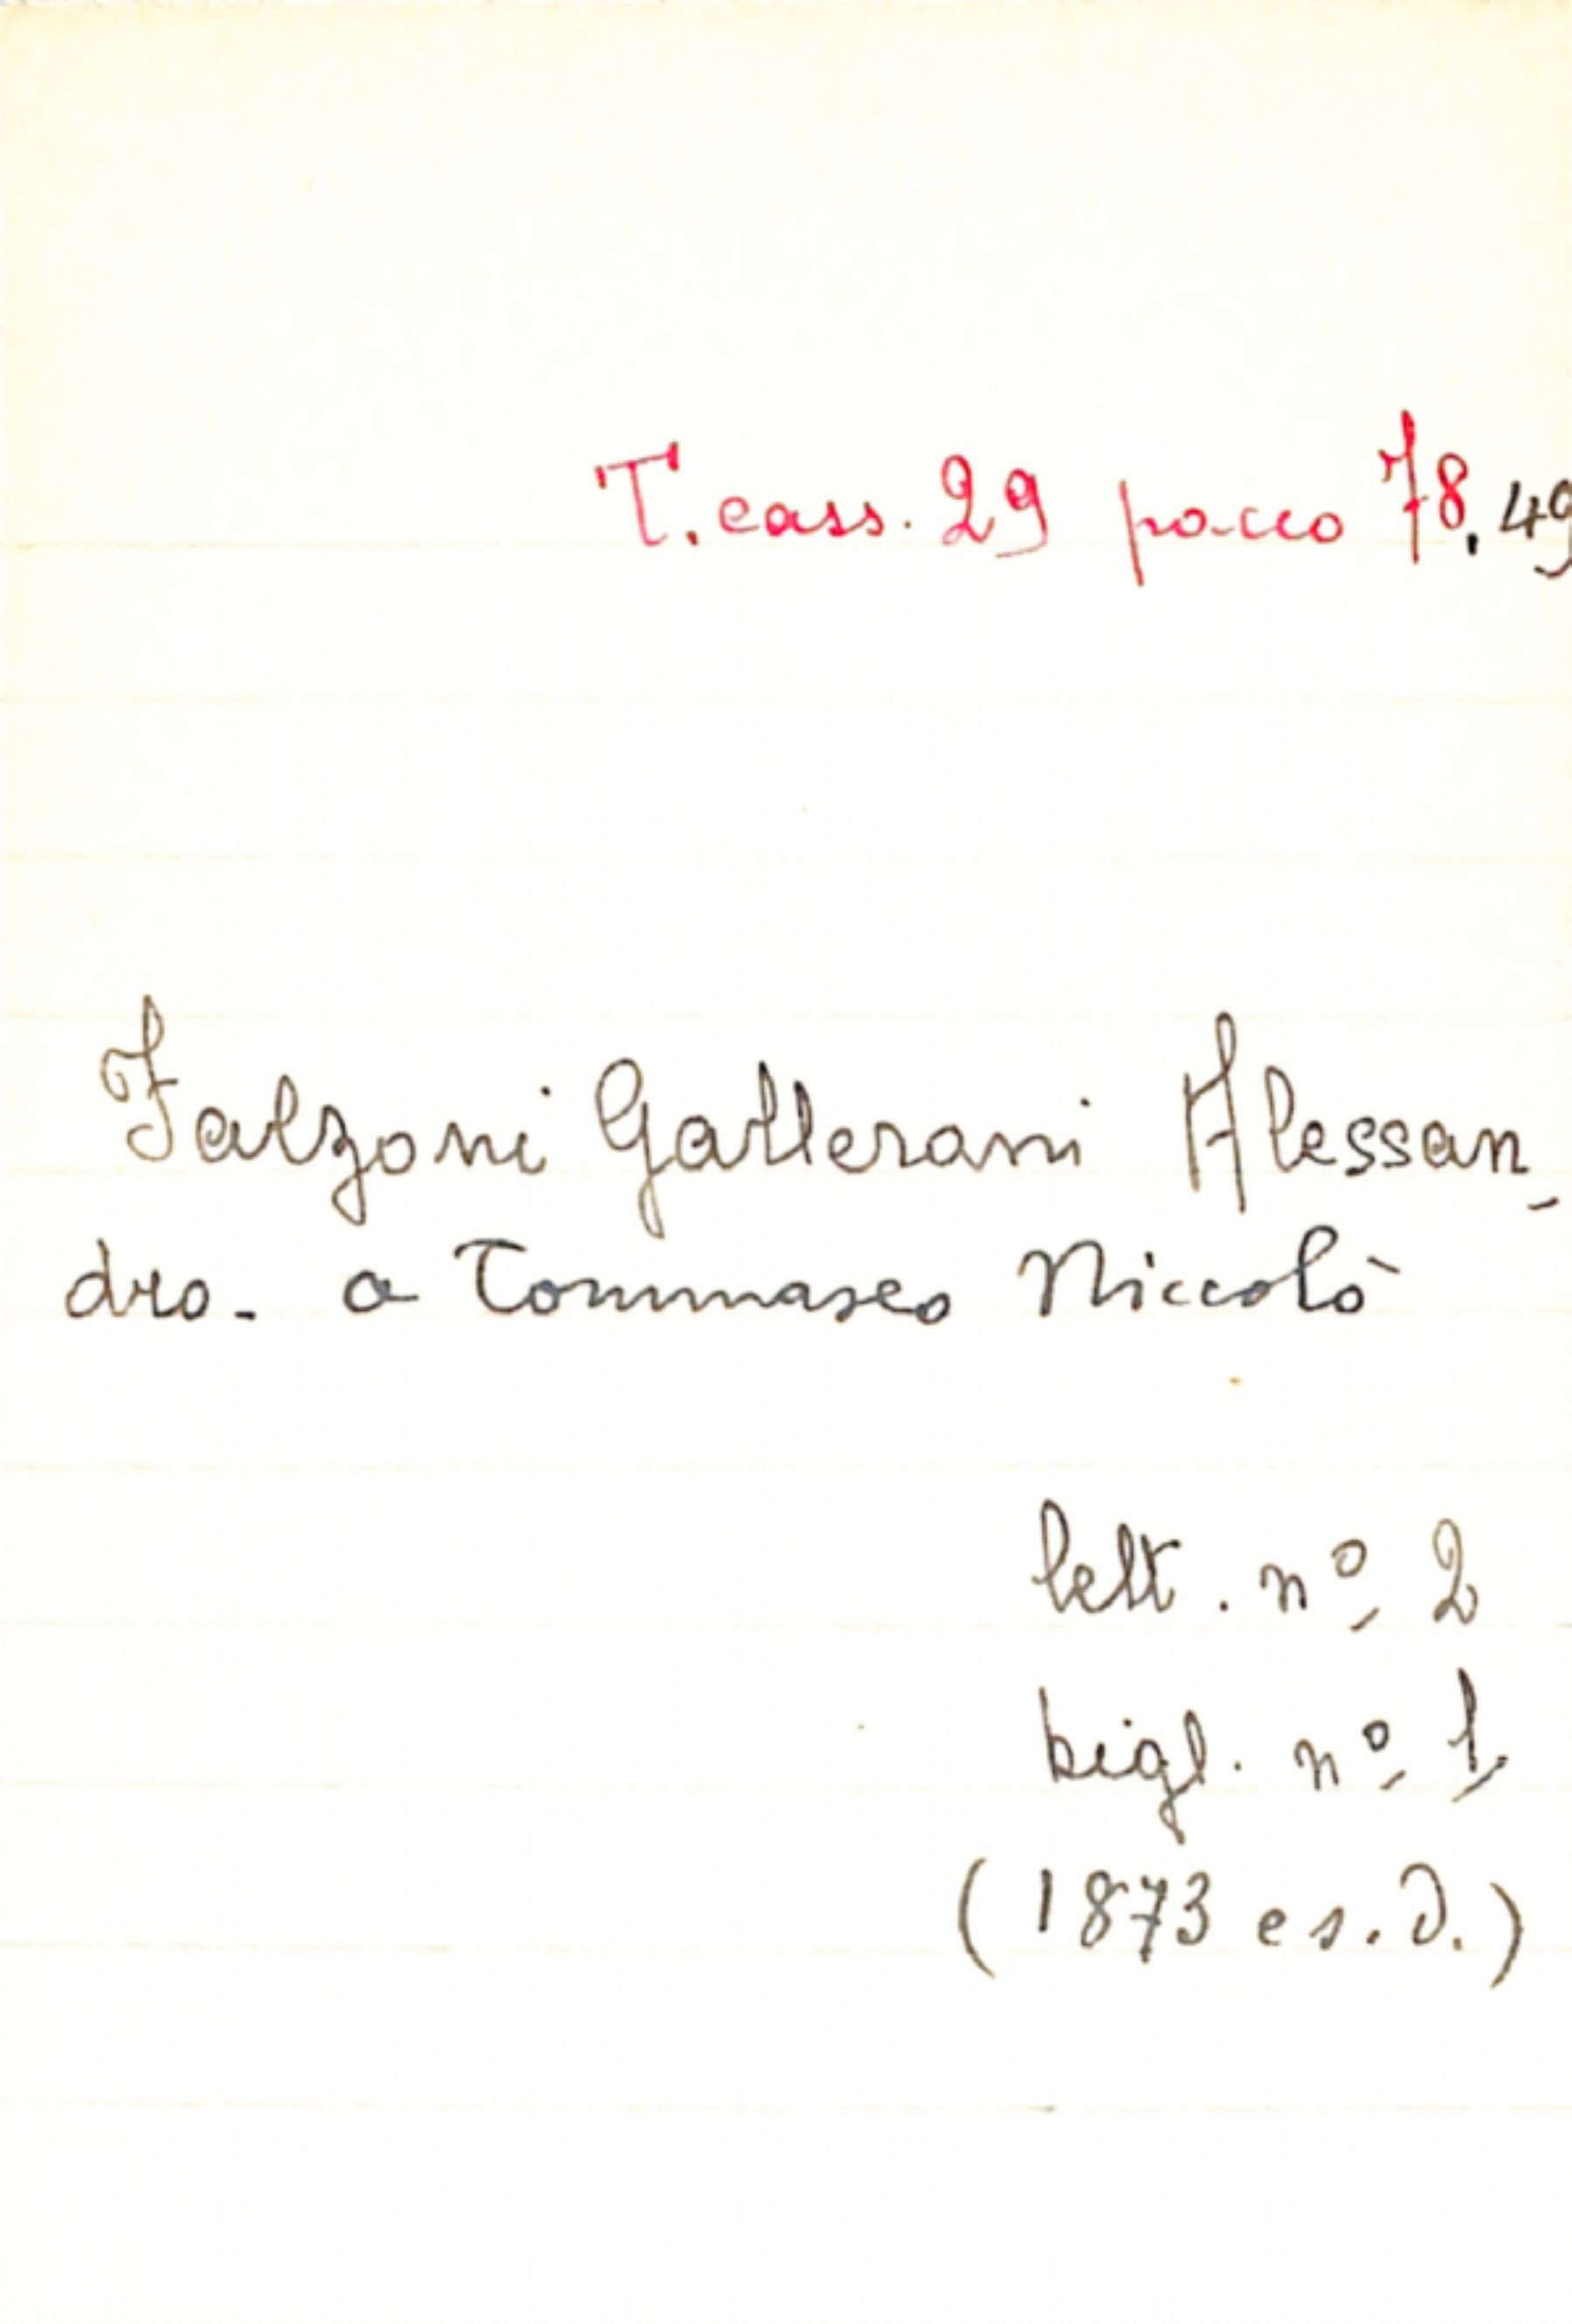 T. cass. 29 pacco 78, 49
Falzoni Gallerani Alessan-
dro - a Tommaseo Niccolò
lett. nº 2
bigl. nº 1
(1873 e s.d.)